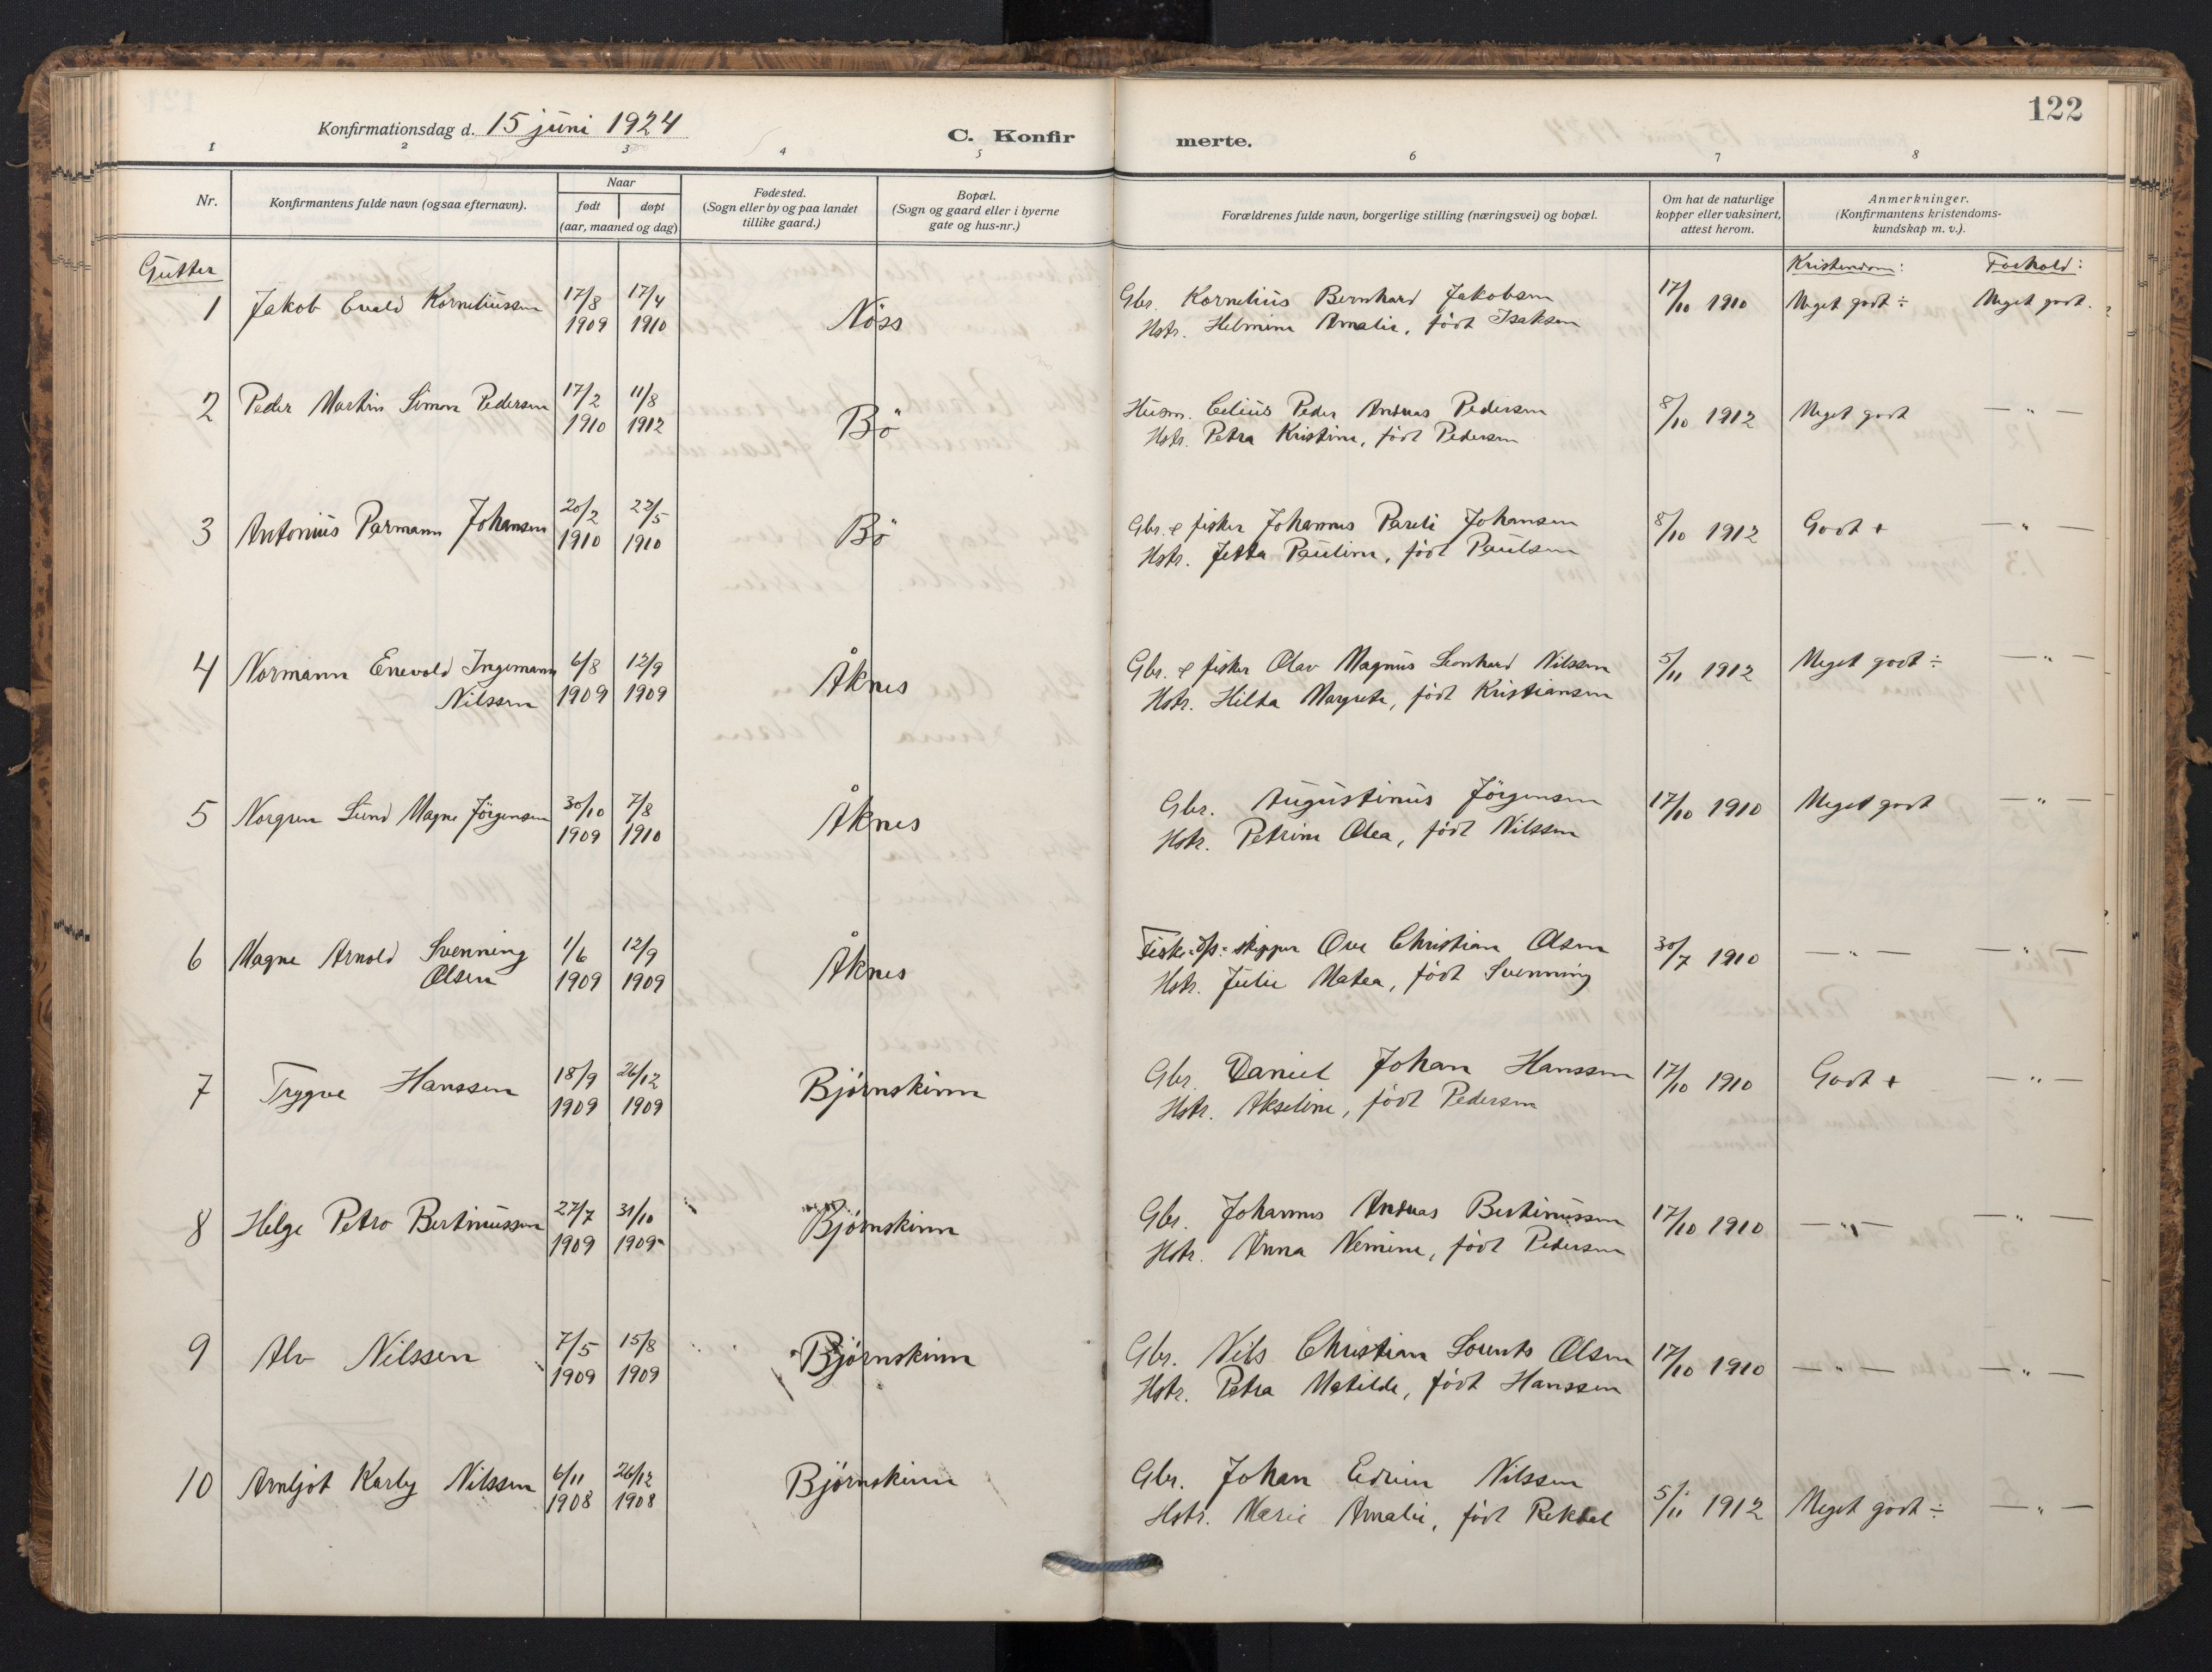 122
Konfirmationsdag d. 15 juni 1924
C. Konfir
merte.
1 2 3 4 5 6 7 8
Nr.
Konfirmantens fulde navn (ogsaa efternavn).
Naar
født
døpt
(aar, maaned og dag)
Fødested.
(Sogn eller by og paa landet
tillike gaard.)
Bopæl.
(Sogn og gaard eller i byerne
gate og hus-nr.)
Forældrenes fulde navn, borgerlige stilling (næringsvei) og bopæl.
Om hat de naturlige
kopper eller vaksinert,
attest herom.
Anmerkninger.
(Konfirmantens kristendoms-
kundskap m. v.).
Gutter
Kristendom: Forhold:
1 Jakob Evald Korneliussen 17/8 1909 17/4 1910 Nöss
Gbr. Kornelius Bernhard Jakobsen
Hstr. Helmine Amalie, född Isaksen
17/10 1910 Meget godt ÷ Meget godt.
2 Peder Martin Simon Pedersen 17/2 1910 11/8 1912 Bö
Husm. Celius Peder Andreas Pedersen
Hstr. Petra Kristine, född Pedersen
8/10 1912 Meget godt — " —
3 Antonius Parmann Johansen 20/2 1910 22/5 1910 Bö
Gbr. & fisker Johannes Pareli Johansen
Hstr. Jetta Pauline, född Paulsen
8/10 1912 Godt + — " —
4 Normann Enevold Ingemann
Nilssen 6/8 1909 12/9 1909 Åknes
Gbr. & fisker Olav Magnus Leonhard Nilssen
Hstr. Hilda Margrete, född Kristiansen
5/11 1912 Meget godt ÷ — " —
5 Norgren Lund Magne Jörgensen 30/10 1909 7/8 1910 Åknes
Gbr. Augustinus Jörgensen
Hstr. Petrine Olea, född Nilssen
17/10 1910 Meget godt — " —
6 Magne Arnold Svenning
Olsen 1/6 1909 12/9 1909 Åknes
skipper Ove Christian Olsen
Hstr. Julie Matea, född Svenning
30/7 1910 — " — — " —
7 Trygve Hanssen 18/9 1909 26/12 1909 Bjørnskinn
Gbr. Daniel Johan Hanssen
Hstr. Akseline, född Pedersen
17/10 1910 Godt + — " —
8 Helge Petro Bertinussen 27/7 1909 31/10 1909 Bjørnskinn
Gbr. Johannes Andreas Bertinussen
Hstr. Anna Nemine, född Pedersen
17/10 1910 — " — — " —
9 Alv Nilssen 7/5 1909 15/8 1909 Bjørnskinn
Gbr. Nils Christian Lorents Olsen
Hstr. Petra Matilde, född Hanssen
17/10 1910 — " — — " —
10 Arnljot Karby Nilssen 6/11 1908 26/12 1908 Bjørnskinn
Gbr. Johan Edvin Nilssen
Hstr. Marie Amalie, född Rekdal
5/11 1912 Meget godt ÷ — " —